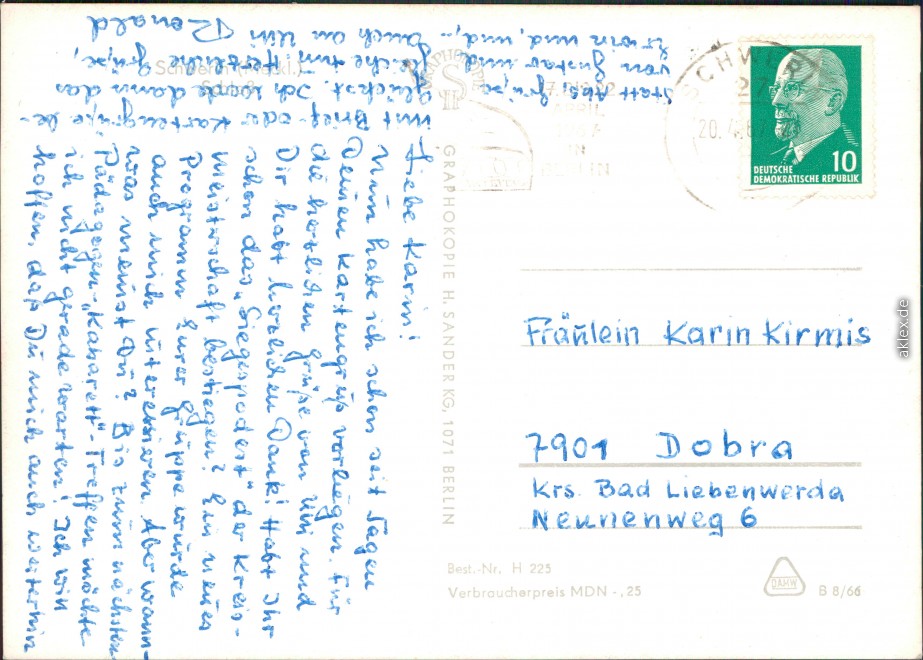 Liebe Karin!
Nun habe ich schon seit Tagen
Deinen Kartengruß vorliegen. Für
die herzlichen Grüße von Uhi und
Dir habt herzlichen Dank! Habt Ihr
schon das "Siegespodest" der Kreis-
meisterschaft bestiegen? Ein neues
Programm Eurer Gruppe würde
auch mich interessieren. Aber wann-
was meinst Du? Bis zum nächsten
Pädagogen-"Kabarett"-Treffen möchte
ich nicht gerade warten! Ich will
hoffen, daß Du mich auch weiterhin
mit Brief- oder Kartengrüße be-
glückst. Ich werde dann das
Gleiche tun. Herzliche Grüße,
auch an Uhi Ronald
Statt Abs. Grüße
von Gustav und
Erwin und, und,..
Schwerin (Meckl.)
Schloß
GRAPHOKOPIE H. SANDER KG, 1071 BERLIN
SCHWERIN
27
20.4.67
IN
BERLIN
10
DEUTSCHE
DEMOKRATISCHE REPUBLIK
Fräulein Karin Kirmis
7901 Dobra
Krs. Bad Liebenwerda
Neunenweg 6
Best.-Nr. H 225
Verbraucherpreis MDN -,25
DAHW
B 8/66
aklex.de